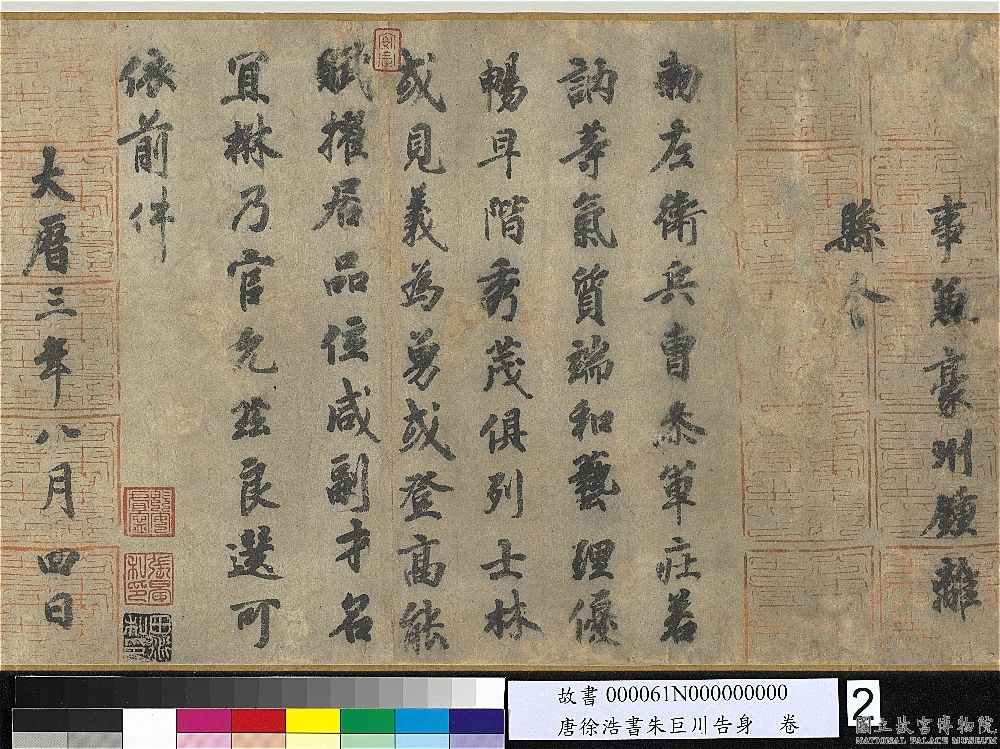 事兼豪州鍾離
縣令
勅左衛兵曹參軍莊若
訥等氣質端和藝理優
暢早階秀茂俱列士林
或見義為勇或登高能
賦擢居品位咸副才名
宜楙乃官允茲良選可
依前件
大曆三年八月四日
故書 000061N000000000
唐徐浩書朱巨川告身 卷
2
國立故宮博物院
NATIONAL PALACE MUSEUM